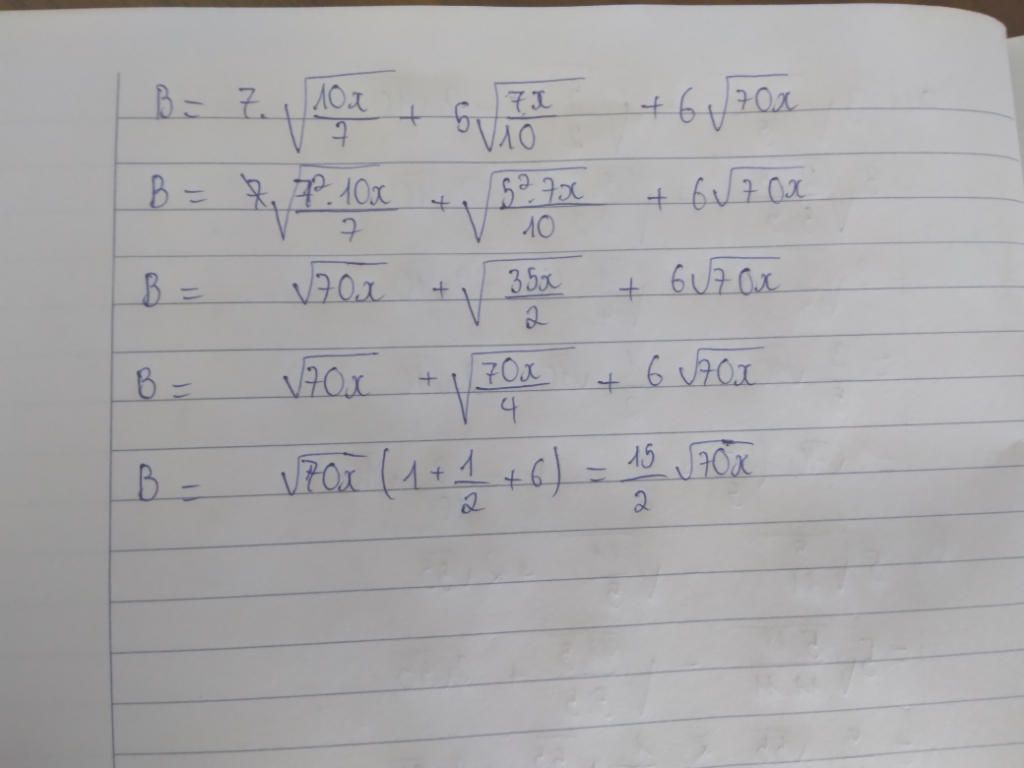 B = 7.√(10x/7) + 5√(7x/10) + 6√(70x)
B = √(7².10x/7) + √(5².7x/10) + 6√(70x)
B = √(70x) + √(35x/2) + 6√(70x)
B = √(70x) + √(70x/4) + 6√(70x)
B = √(70x) (1 + 1/2 + 6) = 15/2 √(70x)